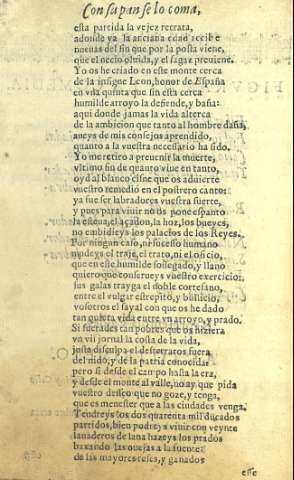 Con su pan se lo coma,
esta partida la vejez retrata,
adonde ya la anciana edad recibe
nueuas del fin que por la posta viene,
que el necio oluida, y el sagaz preuiene.
Yo os he criado en este monte cerca
de la insigne Leon, honor de España
en vna quinta que sin esta cerca
humilde arroyo la defiende, y baña:
aqui donde jamas la vida alterca
de la ambicion que tanto al hombre daña,
aueys de mis consejos aprendido,
quanto a la vuestra necessario ha sido.
Yo me retiro a preuenir la muerte,
vltimo fin de quanto viue en tanto,
oyd al blanco cisne que os aduierte
vuestro remedio en el postrero canto:
ya fue ser labradores vuestra suerte,
y pues para viuir no os pone espanto
la esteua, el açadon, la hoz, los bueyes,
no embidieys los palacios de los Reyes.
Por ningun caso, ni sucesso humano
mudeys el traje, el trato, ni el oficio,
que en este humilde sossegado, y llano
quiero que conserueys vuestro exercicio:
sus galas trayga el noble cortesano,
entre el vulgar estrepito, y bullicio,
vosotros el sayal con que os he dado
tan quieta vida entre vn arroyo, y prado.
Si fuerades tan pobres que os hiziera
vn vil jornal la costa de la vida,
justa disculpa el desterraros fuera
del nido, y de la patria conocida:
pero si desde el campo hasta la era,
y desde el monte al valle, no ay que pida
vuestro desseo que no goze, y tenga,
que es menester que a las ciudades venga.
Tendreys los dos quarenta mil ducados
partidos, bien podreys viuir con veynte
lanaderos de lana hazeys los prados
baxando las ouejas a la fuente:
de las mayores reses, y ganados
esse